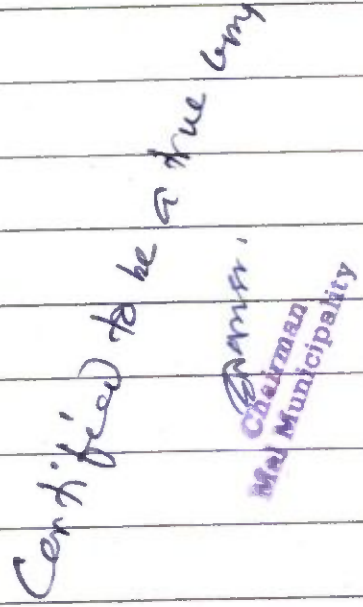 Certified to be a true copy
Chairman
Mal Municipality